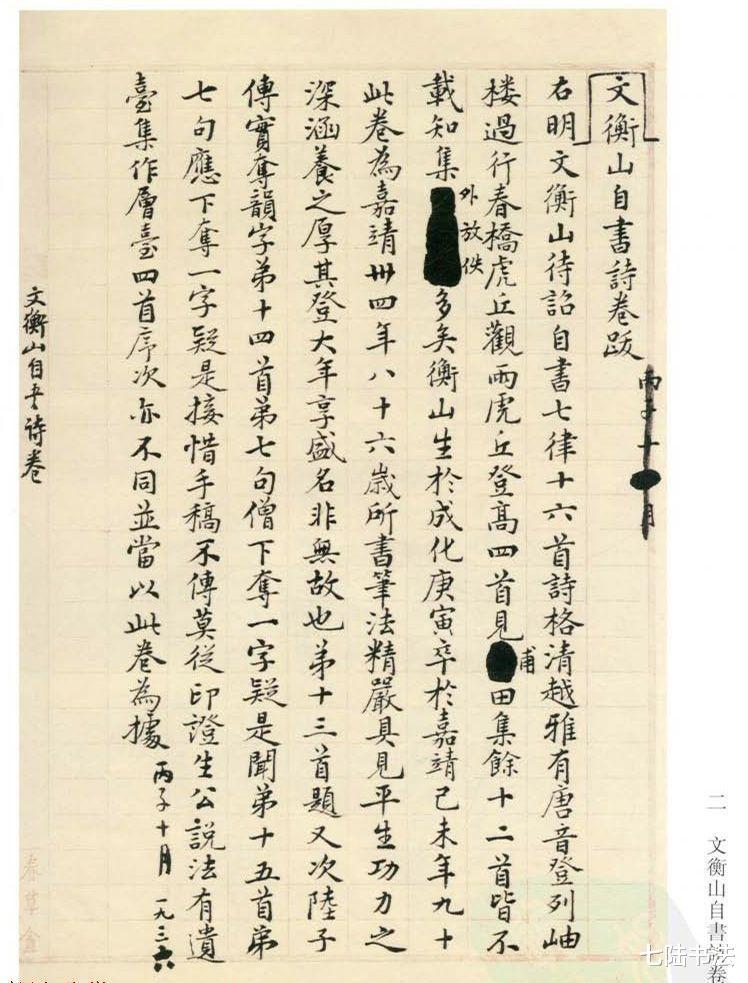 文衡山自書詩卷跋 丙子十月
右明文衡山待詔自書七律十六首詩格清越雅有唐音登列岫
楼過行春橋虎丘觀雨虎丘登高四首見甫田集餘十二首皆不
載知集外放佚多矣衡山生於成化庚寅卒於嘉靖己未年九十
此卷為嘉靖卅四年八十六歲所書筆法精嚴具見平生功力之
深涵養之厚其登大年享盛名非無故也弟十三首題又次陸子
傳實奪韻字弟十四首弟七句僧下奪一字疑是聞弟十五首弟
七句應下奪一字疑是接惜手稿不傳莫從印證生公說法有遺
臺集作層臺四首序次亦不同並當以此卷為據
丙子十月 一九三六
文衡山自書詩卷
春草盦
二 文衡山自書詩卷
七陆书法